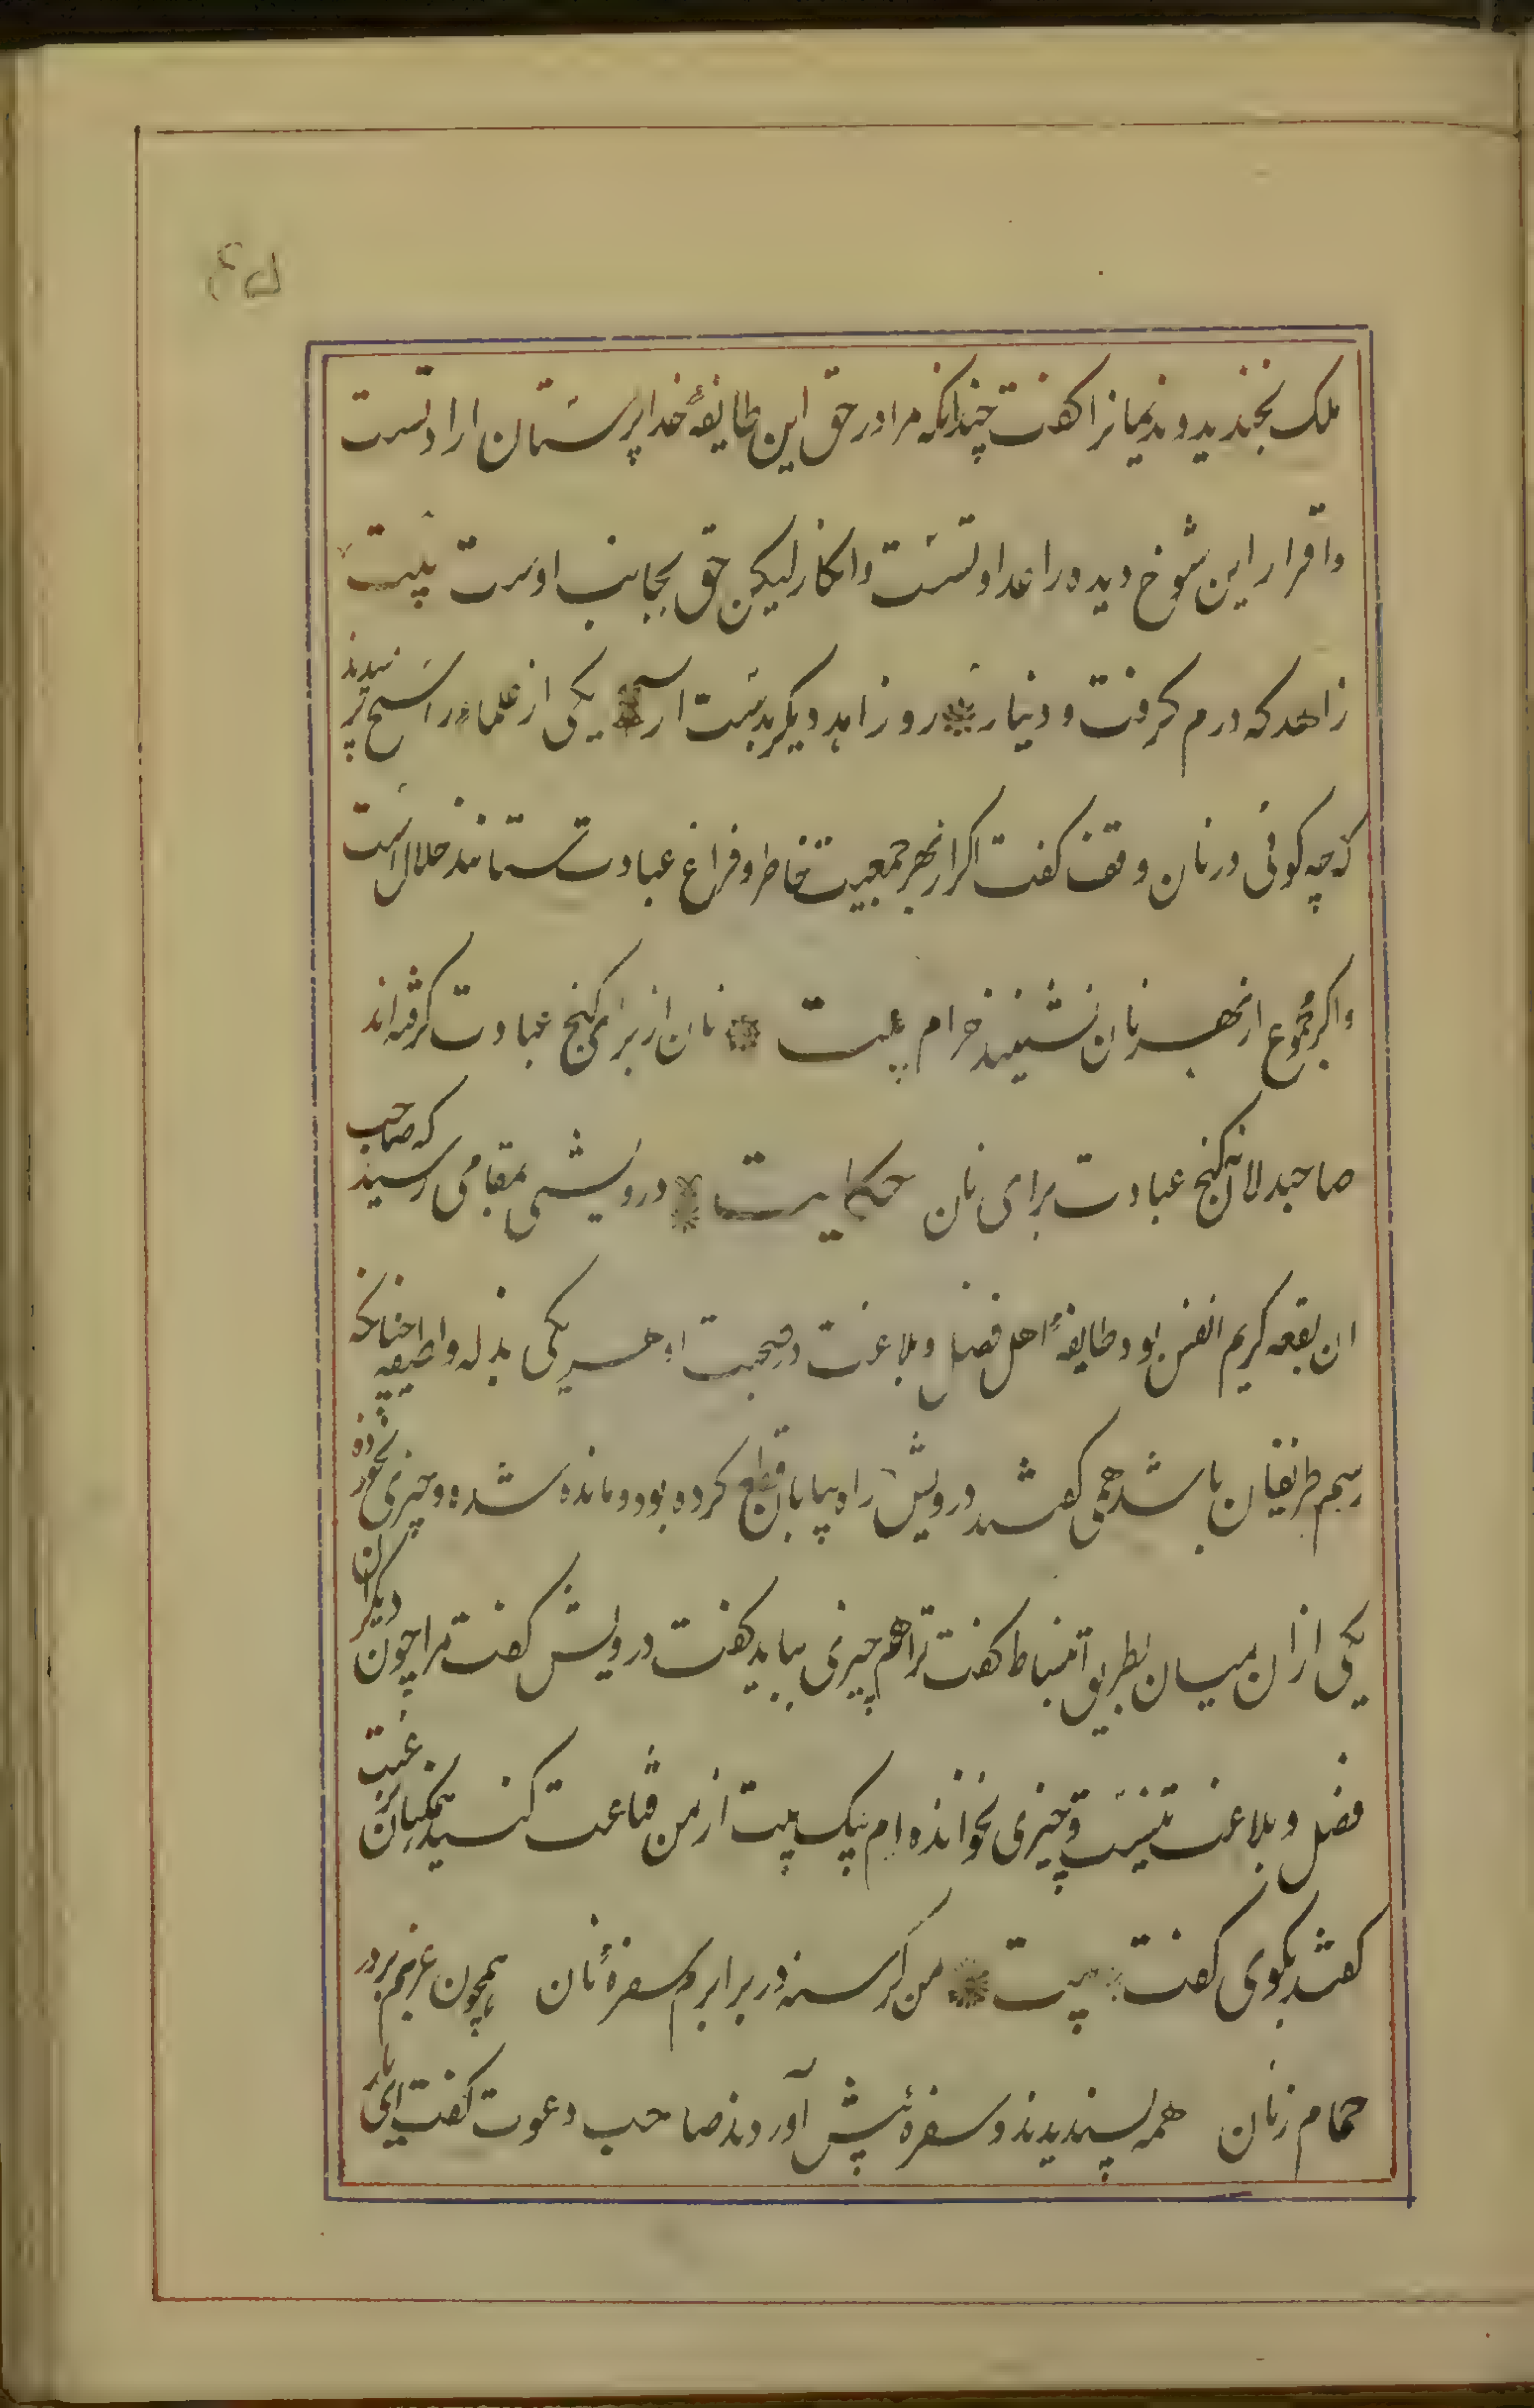 ملک بخندید و ندیمانرا کفت چندانکه مرا در حق این طایفهٔ خدا پرستان ارادتست
و اقرار این شوخ دیده را عداوتست و انکار لیکن حق بجانب اوست بیت
زاهد که درم کرفت و دینار رو زاهد دیکر بدست ار یکی از علماء راسخ پرسیدند
که چه کوئی در نان وقف کفت اکر از بهر جمعیت خاطر و فراغ عبادت ستانند حلال است
و اکر مجموع از بهر نان نشینند حرام بیت نان از برای کنج عبادت کرفته اند
صاحبدلان نه کنج عبادت برای نان حکایت درویشی بمقامی رسید که صاحب
ان بقعه کریم النفس بود طایفهٔ اهل فضل و بلاغت در صحبت او هر یکی بذله و لطیفه چنانکه
رسم ظریفان باشد همی کفتند درویش راه بیابان قطع کرده بود و مانده شده و چیزی نخورده
یکی از ان میان بطریق انبساط کفت ترا هم چیزی بباید کفت درویش کفت مرا چون دیکران
فضل و بلاغت نیست و چیزی نخوانده ام بیک بیت از من قناعت کنید همکنان برغبت
کفتند بکوی کفت بیت من کرسنه در برابرم سفرهٔ نان همچون عزبم بر در
حمام زنان همه پسندیدند و سفره پیش آوردند صاحب دعوت کفت ای یار